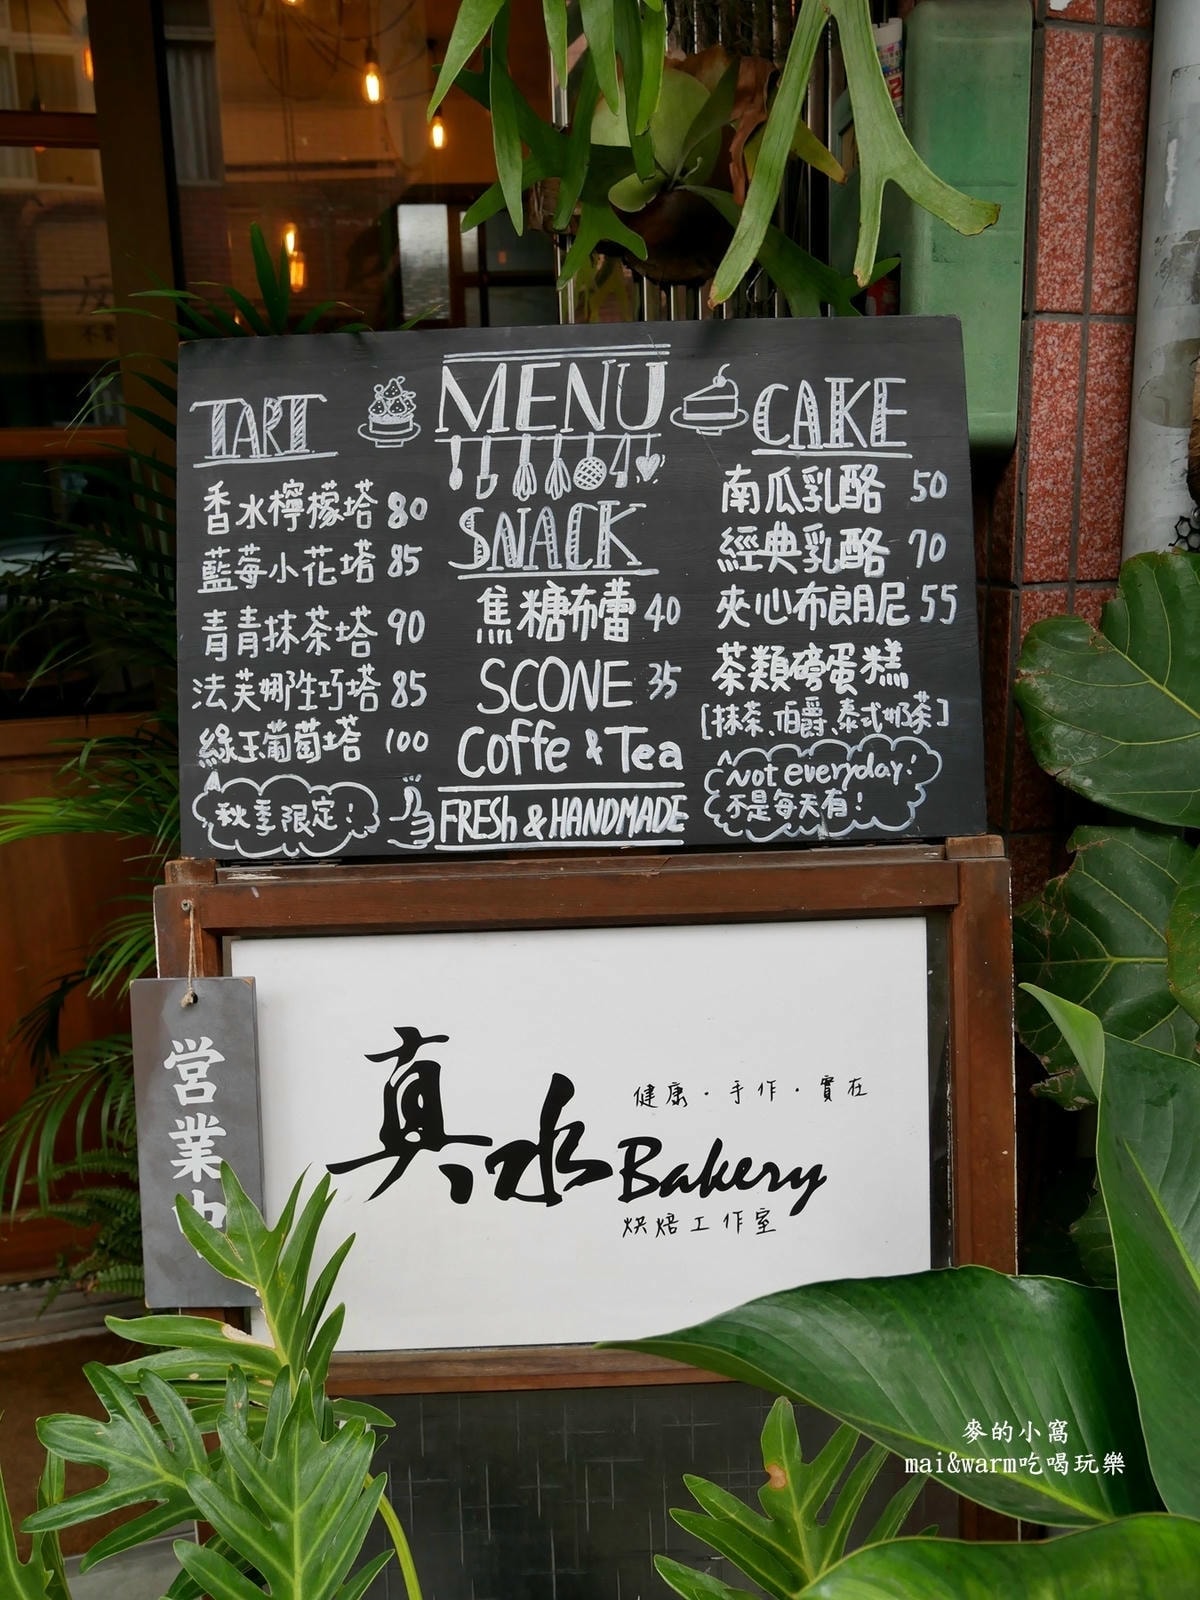 MENU
TART
香水檸檬塔 80
藍莓小花塔 85
青青抹茶塔 90
法芙娜生巧塔 85
綠玉葡萄塔 100
秋季限定!
SNACK
焦糖布蕾 40
SCONE 35
Coffe & Tea
FRESh & HANDMADE
CAKE
南瓜乳酪 50
經典乳酪 70
夾心布朗尼 55
茶類磅蛋糕
[抹茶、伯爵、泰式奶茶]
Not everyday!
不是每天有!
営業中
真水 Bakery
健康・手作・實在
烘焙工作室
麥的小窩
mai&warm吃喝玩樂